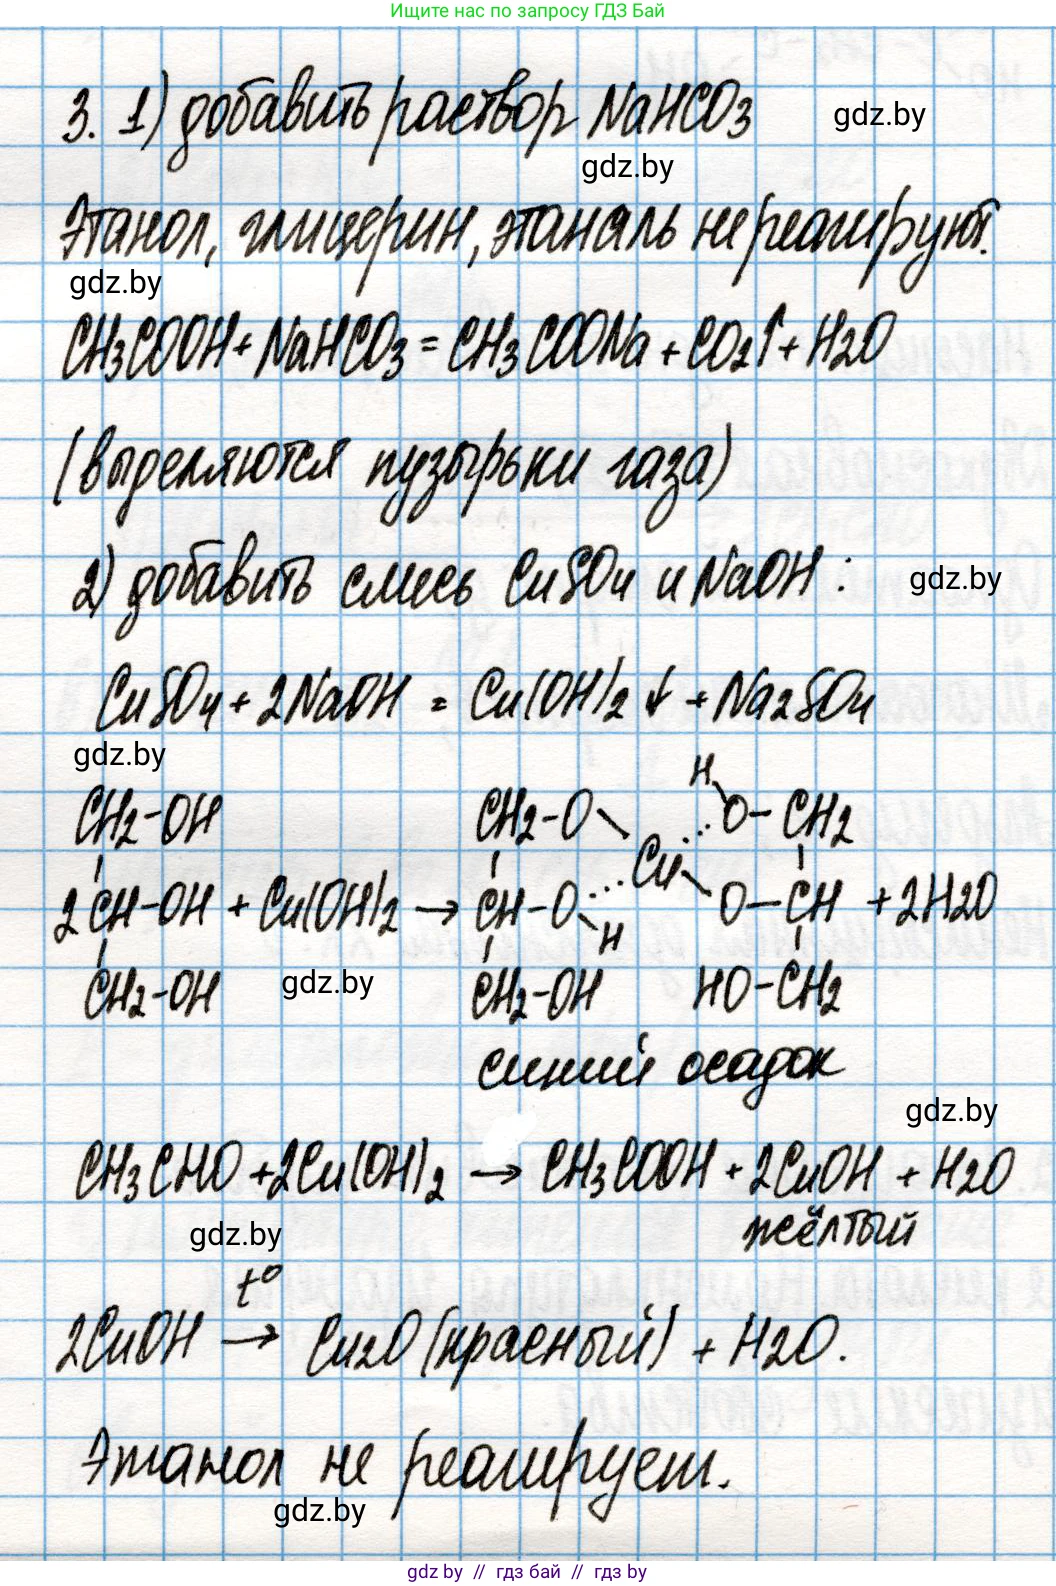 Ищите нас по запросу ГДЗ Бай
3. 1) добавить раствор NaHCO3
gdz.by
gdz.by
Этанол, глицерин, этаналь не реагируют.
gdz.by
CH3COOH + NaHCO3 = CH3COONa + CO2↑ + H2O
(выделяются пузырьки газа)
2) добавить смесь CuSO4 и NaOH :
gdz.by
CuSO4 + 2NaOH = Cu(OH)2 ↓ + Na2SO4
gdz.by
H
CH2-OH CH2-O Cu O-CH2
2 CH-OH + Cu(OH)2 → CH-O H O-CH + 2H2O
CH2-OH gdz.by CH2-OH HO-CH2
синий осадок
gdz.by
CH3CHO + 2Cu(OH)2 → CH3COOH + 2CuOH + H2O
gdz.by
жёлтый
t°
2CuOH → Cu2O (красный) + H2O.
Этанол не реагирует.
gdz.by
gdz.by // гдз бай // гдз by